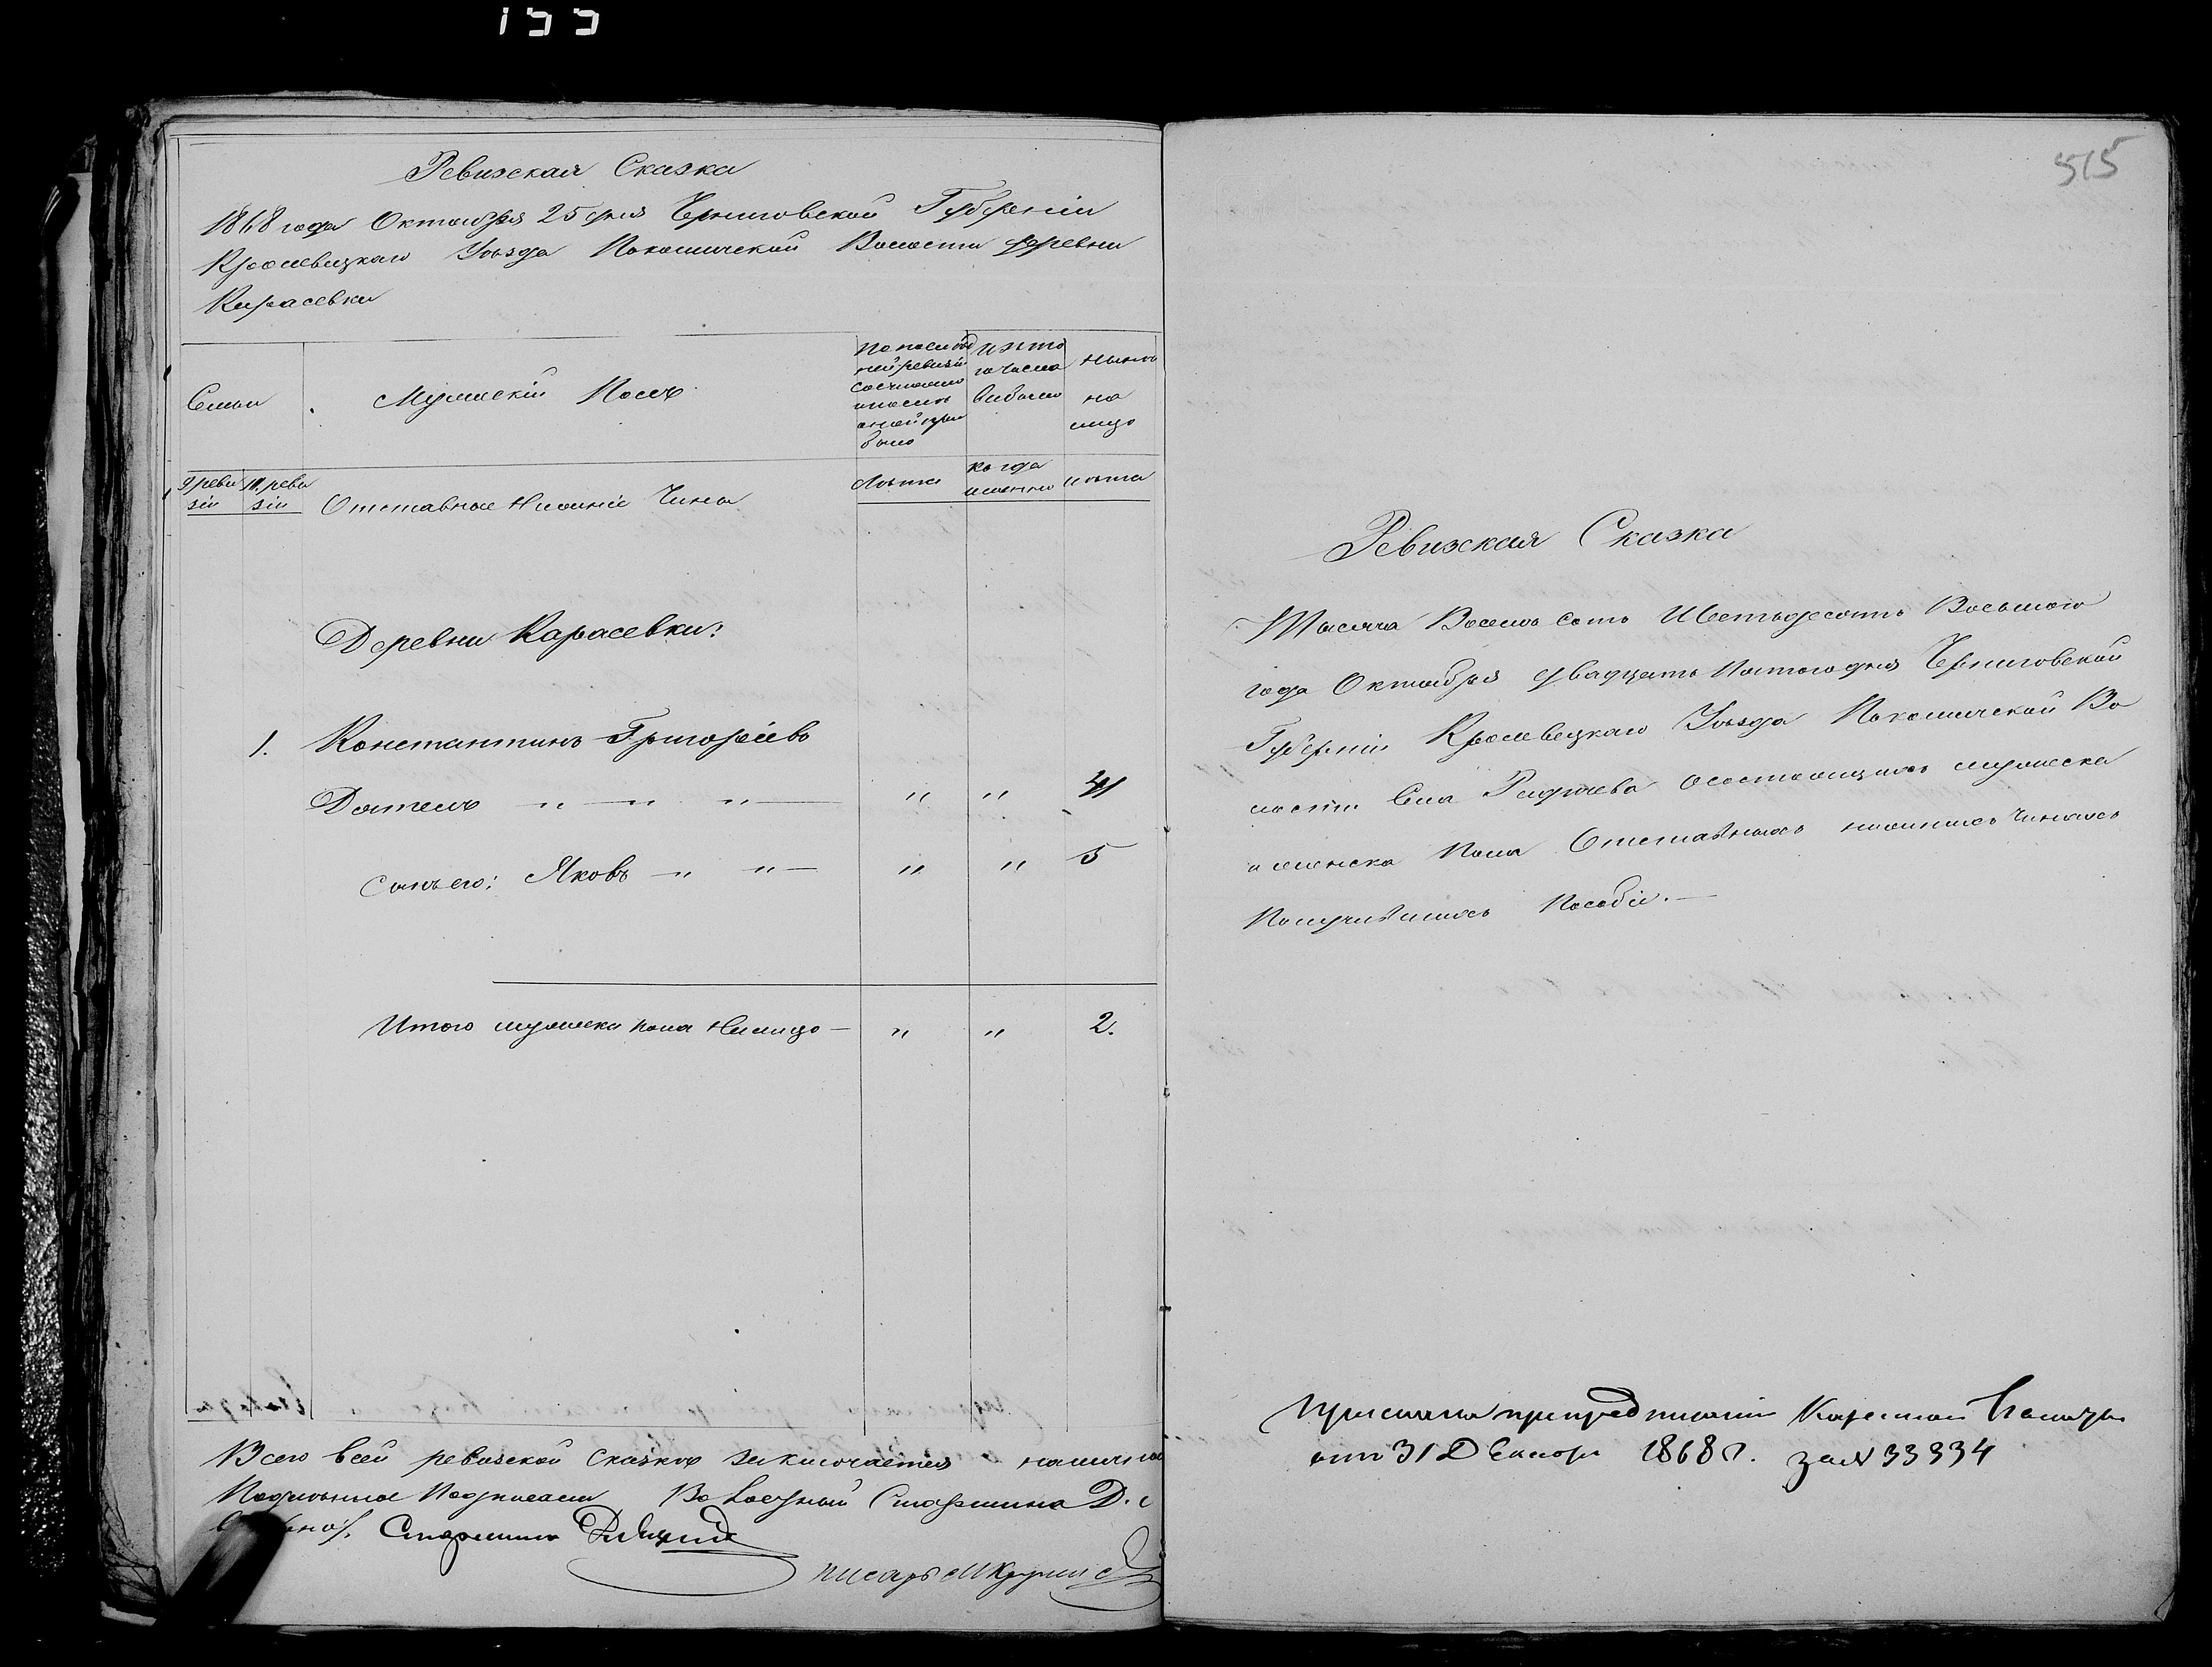 155
Ревизская Сказка
1868 года Октября 25 дня Черниговской Губерніи
Кролевецкаго Уѣзда Покошичской Волости деревни
Карасевки
Семьи
Мужескій Полъ
По послѣд
ней ревизіи
состояло
и послѣ
оной при
было
изъ то
го числа
выбыло
нынѣ
на
лицо
9 реви
зіи
10 реви
зіи
Отставные Нижніе Чины
Лѣта
когда
именно
лѣта
Деревни Карасевки:
1. Константинъ Григорьевъ
Дятелъ — " — " " — " " 41
Сынъ его: Яковъ — " " — " " 5
Итого мужеска пола На лицо — " " 2.
Всего всей ревизской сказкѣ заключается
Подлинное Подписали Волостный Старшина Д.
Старшина
писарь
515
Ревизская Сказка
Тысяча Восемь сотъ Шестьдесятъ Восьмого
года Октября двадцать Пятого дня Черниговской
Губерніи Кролевецкаго Уѣзда Покошичской Во
лости Села о состоящихъ мужеска
и женска пола Отставныхъ нижнихъ Чинахъ
Получившихъ Пособіе. —
Прислана при предписаніи Казенной Палаты
отъ 31 Декабря 1868 г. за № 33334